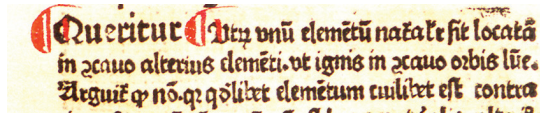 Queritur Vtrũ vnũ elemẽtũ nat̃alr̃ sit locatũ
in ꝯcauo alterius elemẽti. vt ignis in ꝯcauo orbis lũe.
Arguit̃ ꝙ nõ. qꝛ qđlibet elemẽtum cuilibet est contra